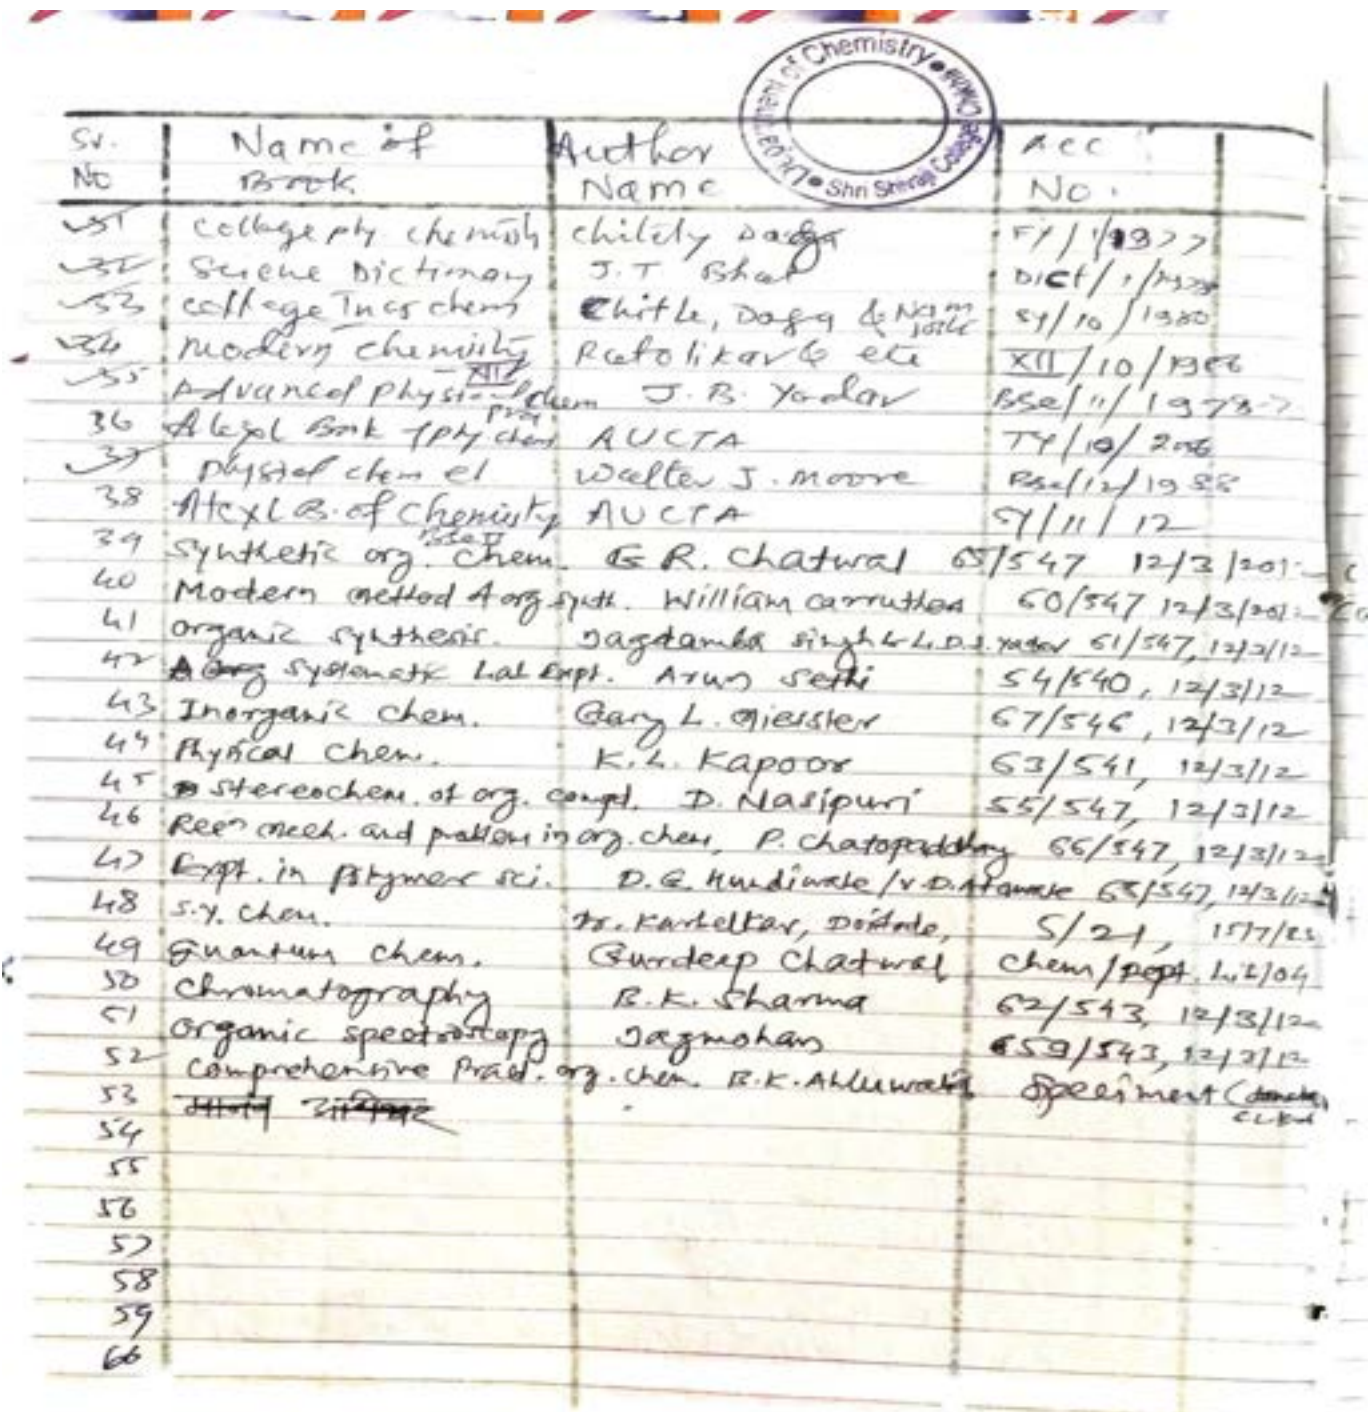 Department of Chemistry • Shri Shivaji College
Sr. No Name of Book Author Name Acc No.
31 college phy. chemisty chitely Daga FY/1/1977
32 Sciene Dictionary J.T. Bhat Dict/1/
33 collage Inor chem Chitle, Daga & Nam Joshi SY/10/1980
34 modern chemisty XII & etc XII/10/1986
35 Advanced physical chem J. B. Yadav BSc/11/1978-7
36 A text Book phy chem AUCTA TY/10/2006
37 physical chem el Walter J. Moore BSc/12/1988
38 A text B. of Chemisty AUCTA SY/11/12
39 Synthetic org. Chem. G R. Chatwal 65/547 12/3/2012
40 Modern method of org synth. William carruthers 60/547 12/3/2012
41 organic synthesis. Jagdamba singh & L.D.S. Yadav 61/547, 12/3/12
42 Systematic Lab Expt. Arun Sethi 54/540, 12/3/12
43 Inorganic chem. Gary L. Miessler 67/546, 12/3/12
44 Physical Chem. K.L. Kapoor 63/541, 12/3/12
45 Stereochem. of org. compd. D. Nasipuri 55/547, 12/3/12
46 Reen mech. and problem in org. chem, P. Chatopaddhay 66/547, 12/3/12
47 Expt. in polymer sci. D.G. Hundiwale / V.D. Atawale 68/547, 12/3/12
48 S.Y. Chem. Dr. Karhelkar, 5/21, 15/7/83
49 Quantum chem. Gurdeep Chatwal Chem/Dept. Lib/04
50 Chromatography B.K. Sharma 62/543, 12/3/12
51 organic spectroscopy Jagmohan 59/543, 12/3/12
52 Comprehensive Pract. org. chem. B.K. Ahluwalia Speciment
53
54
55
56
57
58
59
60